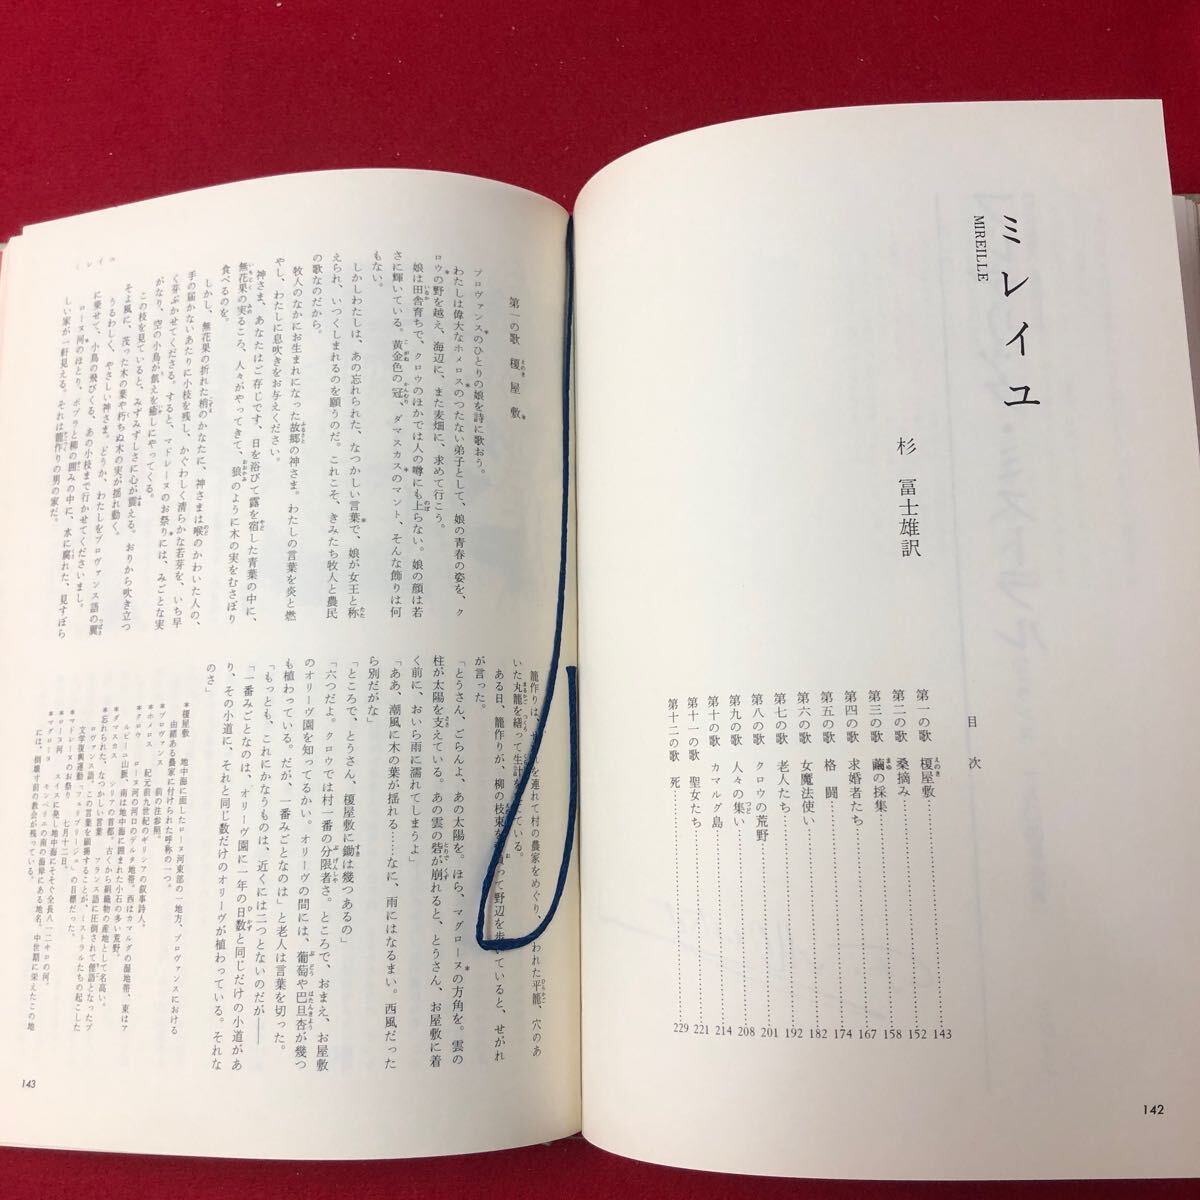 ミレイユ
MIREILLE
杉 冨士雄訳
目次
第一の歌 榎屋敷 143
第二の歌 桑摘み 152
第三の歌 繭の採集 158
第四の歌 求婚者たち 167
第五の歌 格闘 174
第六の歌 女魔法使い 182
第七の歌 老人たち 192
第八の歌 クロウの荒野 201
第九の歌 人々の集い 208
第十の歌 カマルグ島 214
第十一の歌 聖女たち 221
第十二の歌 死 229
142
第一の歌 榎屋敷*
プロヴァンス*のひとりの娘を詩に歌おう。
わたしは偉大なホメロス*のつたない弟子として、娘の青春の姿を、ク
ロウ*の野を越え、海辺に、また麦畑に、求めて行こう。
娘は田舎育ちで、クロウのほかでは人の噂にも上らない。娘の顔は若
さに輝いている。黄金色の冠、ダマスカス*のマント、そんな飾りは何
もない。
しかしわたしは、あの忘れられた、なつかしい言葉*で、娘が女王と称
えられ、いつくしまれるのを願うのだ。これこそ、きみたち牧人と農民
の歌なのだから。
牧人のなかにお生まれになった故郷の神さま。わたしの言葉を炎と燃
やし、わたしに息吹きをお与えください。
神さま、あなたはご存じです、日を浴びて露を宿した青葉の中に、
無花果の実るころ、人々がやってきて、狼のように木の実をむさぼり
食べるのを。
しかし、無花果の折れた梢のかなたに、神さまは喉のかわいた人の、
手の届かないあたりに小枝を残し、かぐわしく清らかな若芽を、いち早
く芽ぶかせてくださる。すると、マドレーヌのお祭り*には、みごとな実
がなり、空の小鳥が飢えを癒しにやってくる。
この枝を見ていると、みずみずしさに心が震える。おりから吹き立つ
そよ風に、茂った木の葉や朽ちぬ木の実が揺れ動く。
うるわしく、やさしい神さま。どうか、わたしをプロヴァンス語の翼
に乗せて、小鳥の飛びくる、あの小枝まで行かせてくださいまし。
ローヌ河*のほとり、ポプラと柳の囲みの中に、水に腐れた、見すぼら
しい家が一軒見える。それは籠作りの男の家だ。
籠作りは、せがれを連れて村の農家をめぐり、われた平籠、穴のあ
いた丸籠を繕って生計を立てている。
ある日、籠作りが、柳の枝束を背負って野辺を歩いていると、せがれ
が言った。
「とうさん、ごらんよ、あの太陽を。ほら、マグローヌ*の方角を。雲の
柱が太陽を支えている。あの雲の砦が崩れると、とうさん、お屋敷に着
く前に、おいら雨に濡れてしまうよ」
「ああ、潮風に木の葉が揺れる……なに、雨にはなるまい。西風だった
ら別だがな」
「ところで、とうさん、榎屋敷に鋤は幾つあるの」
「六つだよ。クロウでは村一番の分限者さ。ところで、おまえ、お屋敷
のオリーヴ園を知ってるかい。オリーヴの間には、葡萄や巴旦杏が幾つ
も植わっている。だが、一番みごとなのは」と老人は言葉を切った。
「もっとも、これにかなうものは、近くには二つとないのだが――
「一番みごとなのは、オリーヴ園に一年の日数と同じだけの小道があ
り、その小道に、それと同じ数だけのオリーヴが植わっている。それな
のさ」
*榎屋敷 地中海に面したローヌ河東部の一地方、プロヴァンスにおける
由緒ある農家に付けられた呼称の一つ。
*プロヴァンス 前の注参照。
*ホメロス 紀元前九世紀のギリシアの叙事詩人。
*クロウ ローヌ河の河口のデルタ地帯。西はカマルグの湿地帯、東はア
ルピーユ山脈、南は地中海に囲まれた小石の多い荒野。
*ダマスカス シリアの首都。古くから絹織物の産地として名高い。
*忘れられた、なつかしい言葉 フランス語に圧倒されて俚語となったプ
ロヴァンス語。この言葉を顕揚することが、ミストラルたちの起こした
文学復興運動「フェリブリージュ」の目標だった。
*マドレーヌのお祭り 七月二十二日。
*ローヌ河 スイスに発し地中海にそそぐ全長八一二キロの河。
*マグローヌ モンペリエの南の海岸にある地名。中世期に栄えたこの地
には、倒壊寸前の教会が残っている。
ミレイユ
143